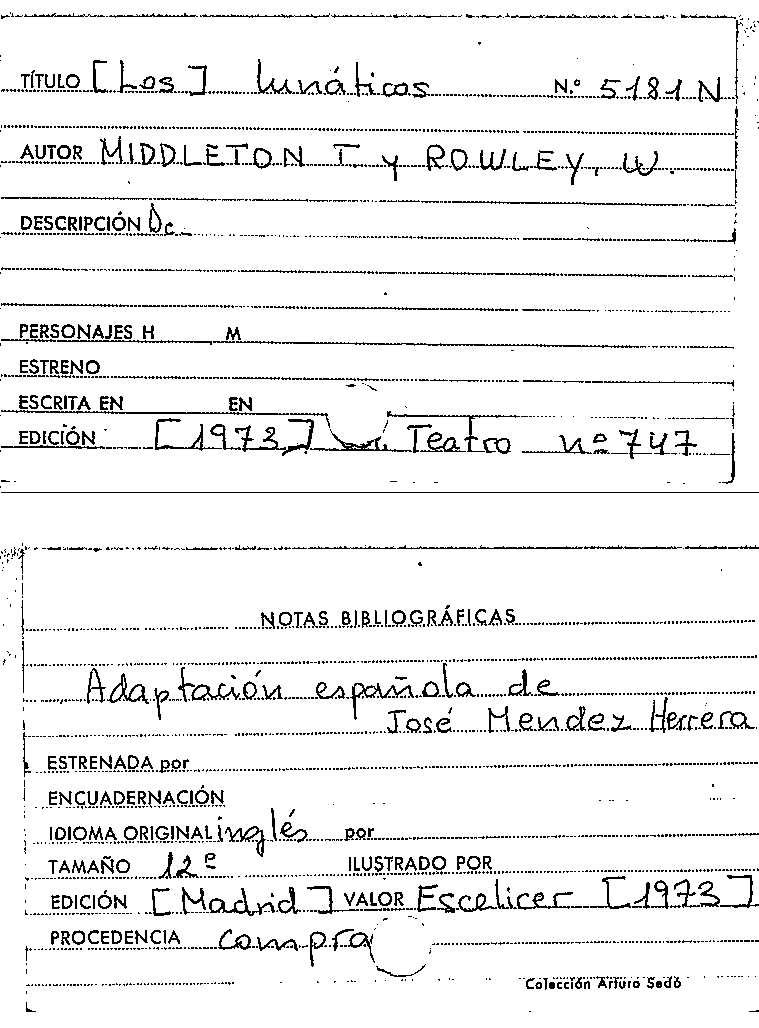 TÍTULO [Los] lunáticos N.º 5181 N
AUTOR MIDDLETON T. y ROWLEY, W.
DESCRIPCIÓN Dc
PERSONAJES H M
ESTRENO
ESCRITA EN EN
EDICIÓN [1973] Teatro nº 747
NOTAS BIBLIOGRÁFICAS
Adaptación española de
José Mendez Herrera
ESTRENADA por
ENCUADERNACIÓN
IDIOMA ORIGINAL inglés por
TAMAÑO 12º ILUSTRADO POR
EDICIÓN [Madrid] VALOR Escelicer [1973]
PROCEDENCIA compra
Colección Arturo Sedó